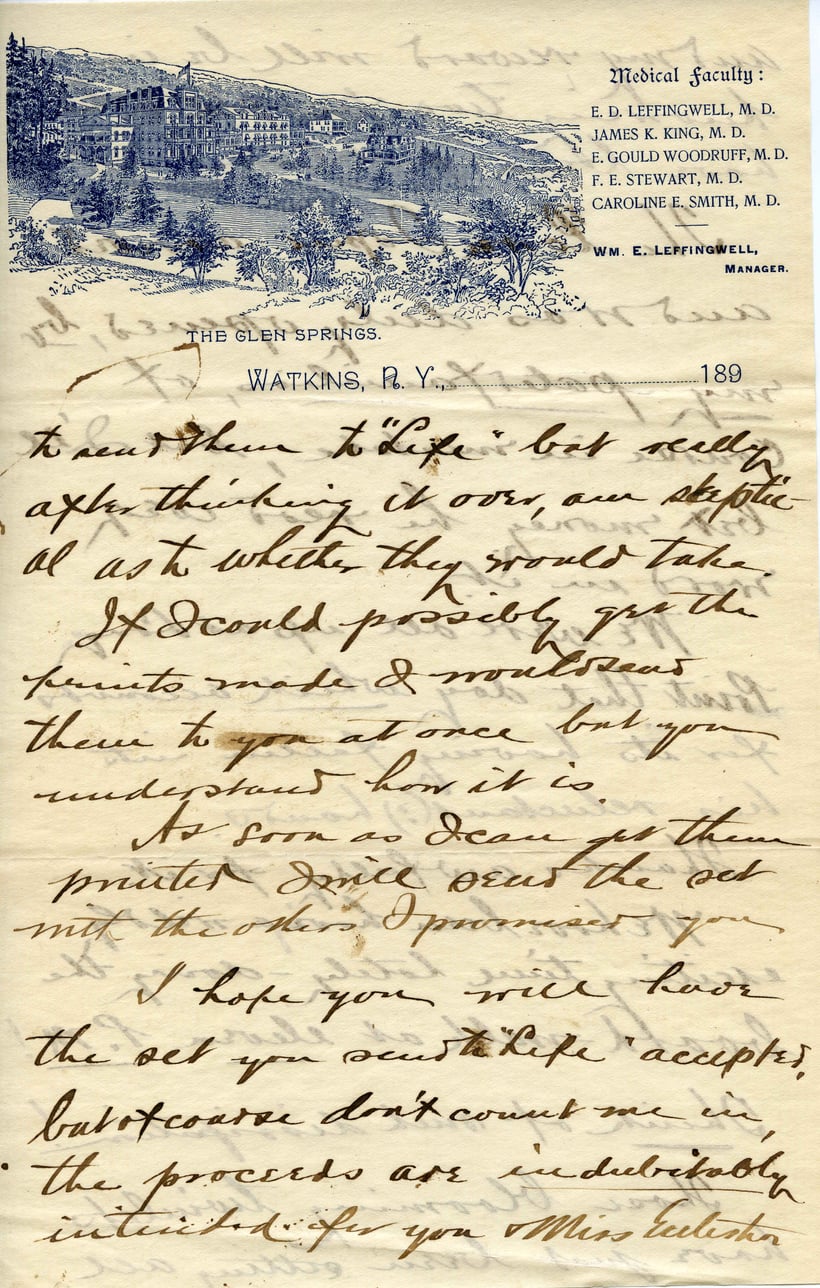 Medical Faculty:
E. D. LEFFINGWELL, M. D.
JAMES K. KING, M. D.
E. GOULD WOODRUFF, M. D.
F. E. STEWART, M. D.
CAROLINE E. SMITH, M. D.
WM. E. LEFFINGWELL,
MANAGER.
THE GLEN SPRINGS.
WATKINS, N. Y., 189
to send them to "Life" but really
after thinking it over, am skeptic-
al as to whether they would take.
If I could possibly get the
prints made I would send
them to you at once but you
understand how it is
As soon as I can get them
printed I will send the set
with the others I promised you
I hope you will have
the set you send to "Life" accepted,
but of course don't count me in,
the proceeds are indubitably
intended for you & Miss Eccleston